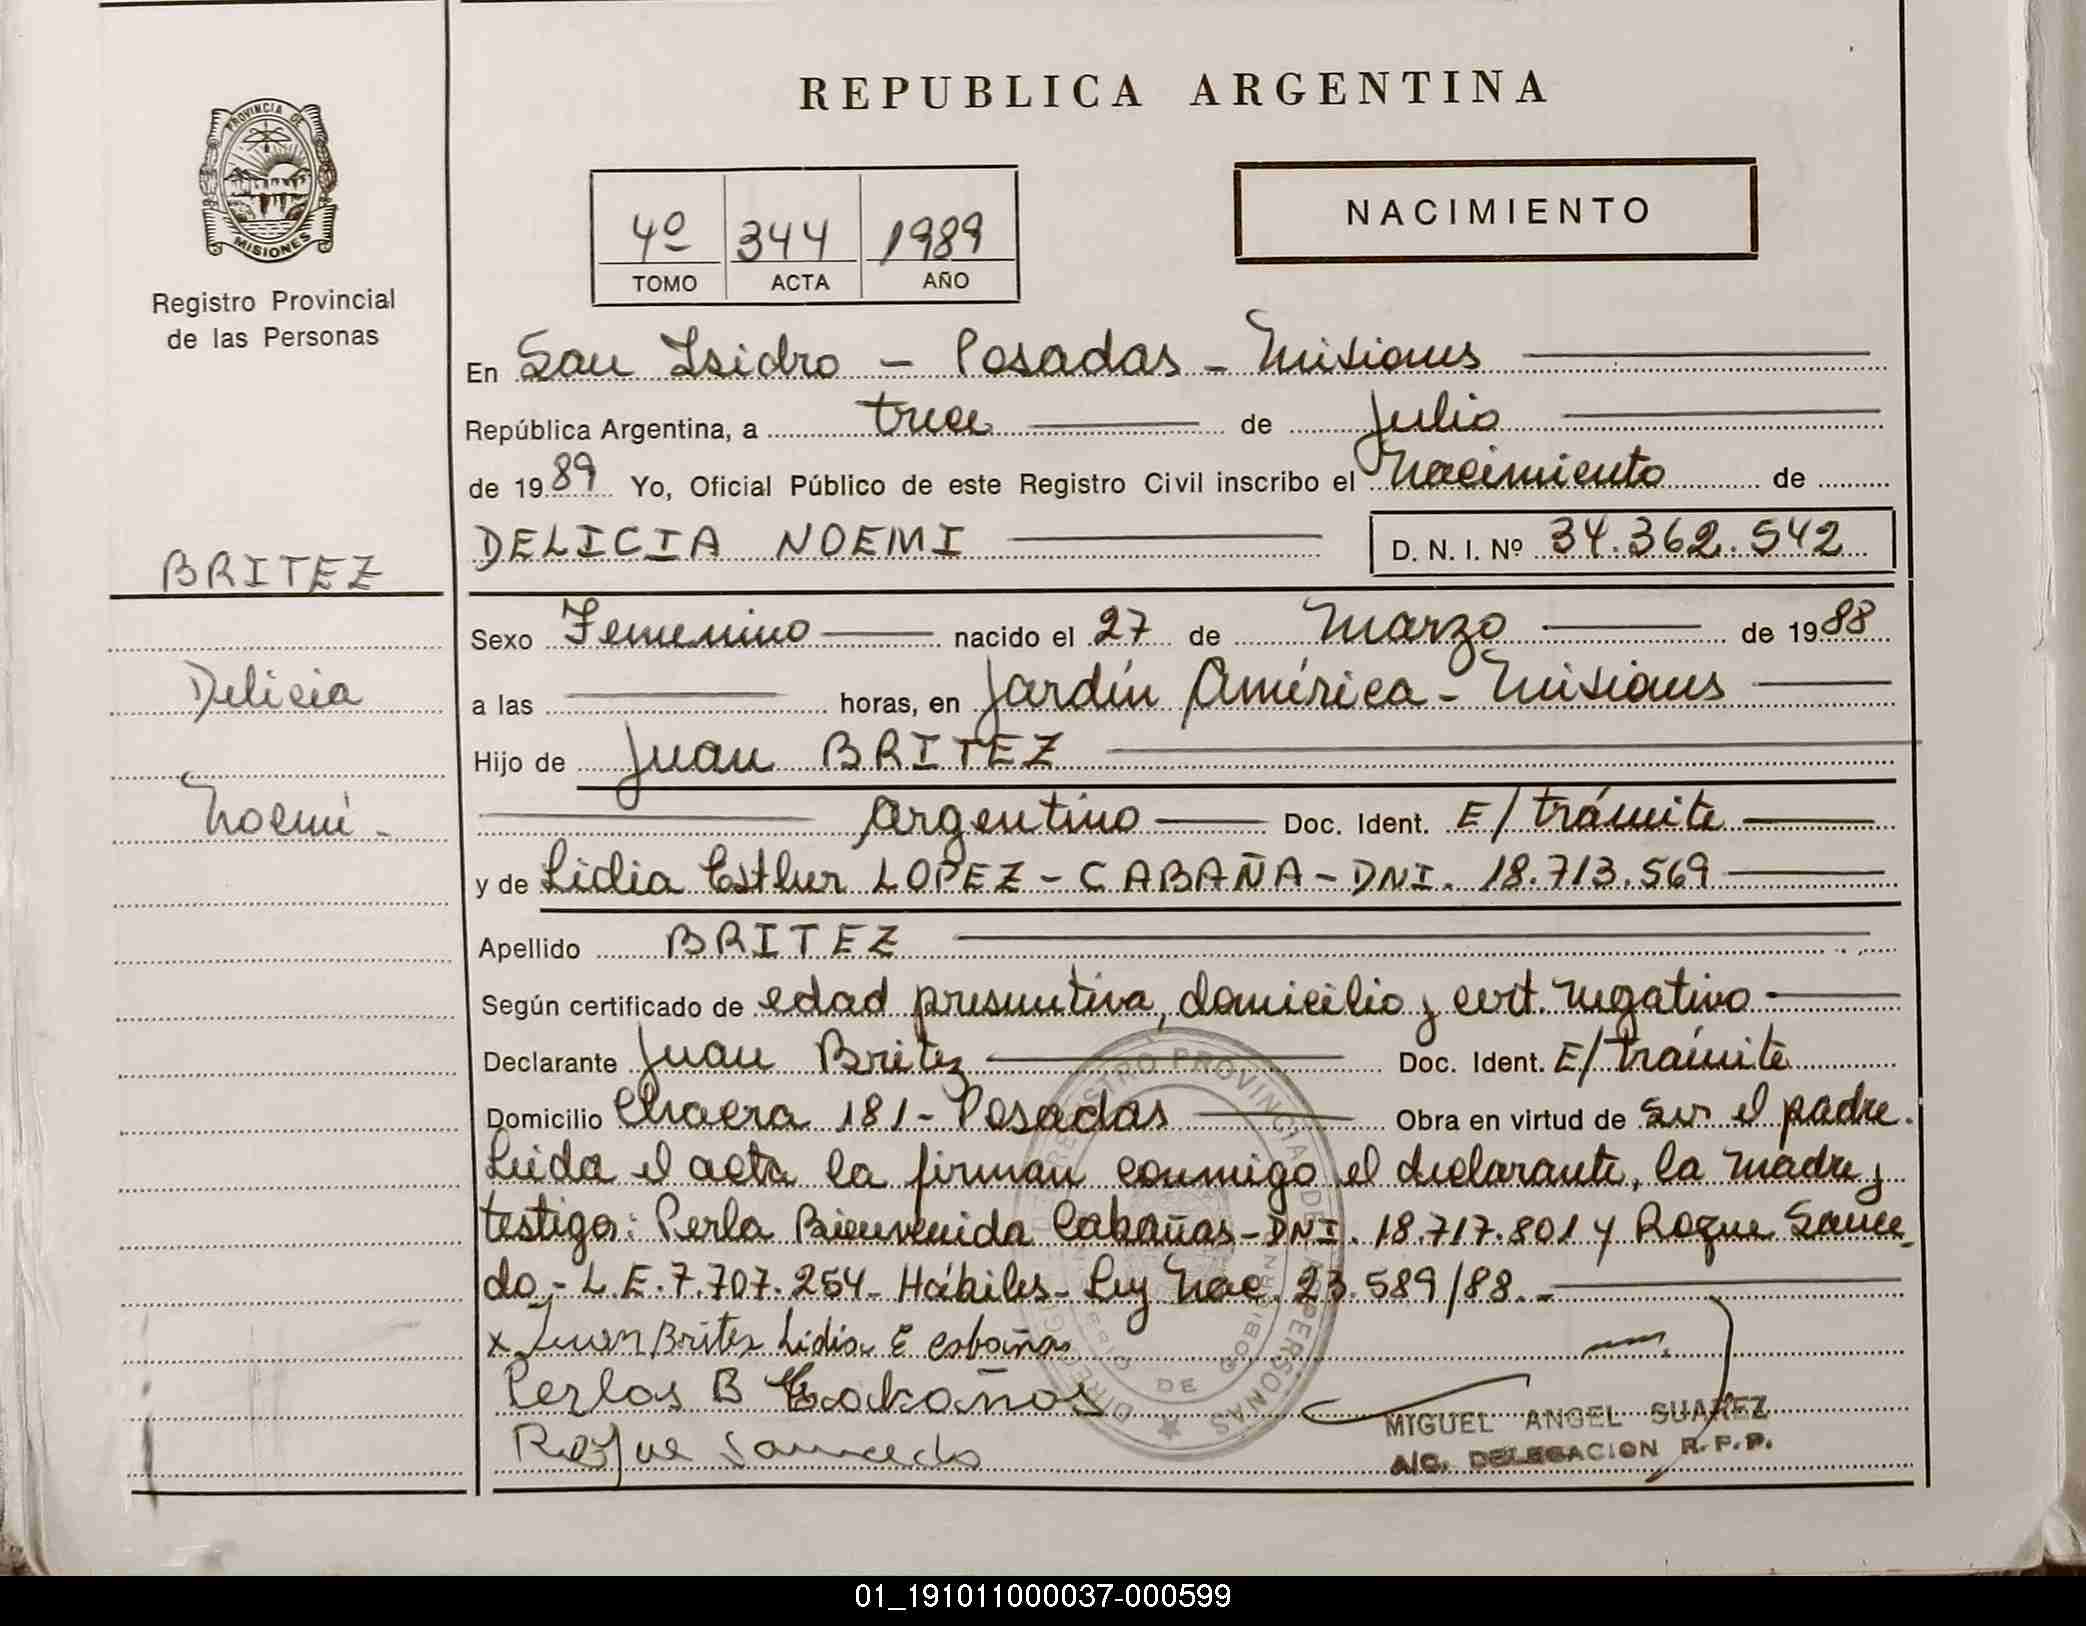 REPUBLICA ARGENTINA
PROVINCIA DE
MISIONES
Registro Provincial
de las Personas
4º 344 1989
TOMO ACTA AÑO
NACIMIENTO
En San Isidro - Posadas - Misiones
República Argentina, a trece de Julio
de 1989 Yo, Oficial Público de este Registro Civil inscribo el Nacimiento de
DELICIA NOEMI D. N. I. Nº 34.362.542
BRITEZ
Delicia
Noemí.-
Sexo Femenino nacido el 27 de Marzo de 1988
a las horas, en Jardín América - Misiones
Hijo de Juan BRITEZ
Argentino Doc. Ident. E/trámite
y de Lidia Esther LOPEZ - CABAÑA - DNI. 18.713.569
Apellido BRITEZ
Según certificado de edad presuntiva, domicilio y cert. negativo.
Declarante Juan Britez Doc. Ident. E/trámite
Domicilio Chacra 181 - Posadas Obra en virtud de ser el padre.
Leida el acta la firman conmigo el declarante, la madre y
testigos: Perla Bienvenida Cabañas - DNI. 18.717.801 y Roque Sauce-
do.- L.E. 7.707.254 - Hábiles - Ley Nac. 23.589/88.-
x Juan Brites Lidia E cabaña
Perlas B Cabañas
Roque Saucedo
MIGUEL ANGEL SUAREZ
A/C. DELEGACION R.P.P.
REGISTRO PROVINCIAL DE PERSONAS
DE GOBIERN
01_191011000037-000599